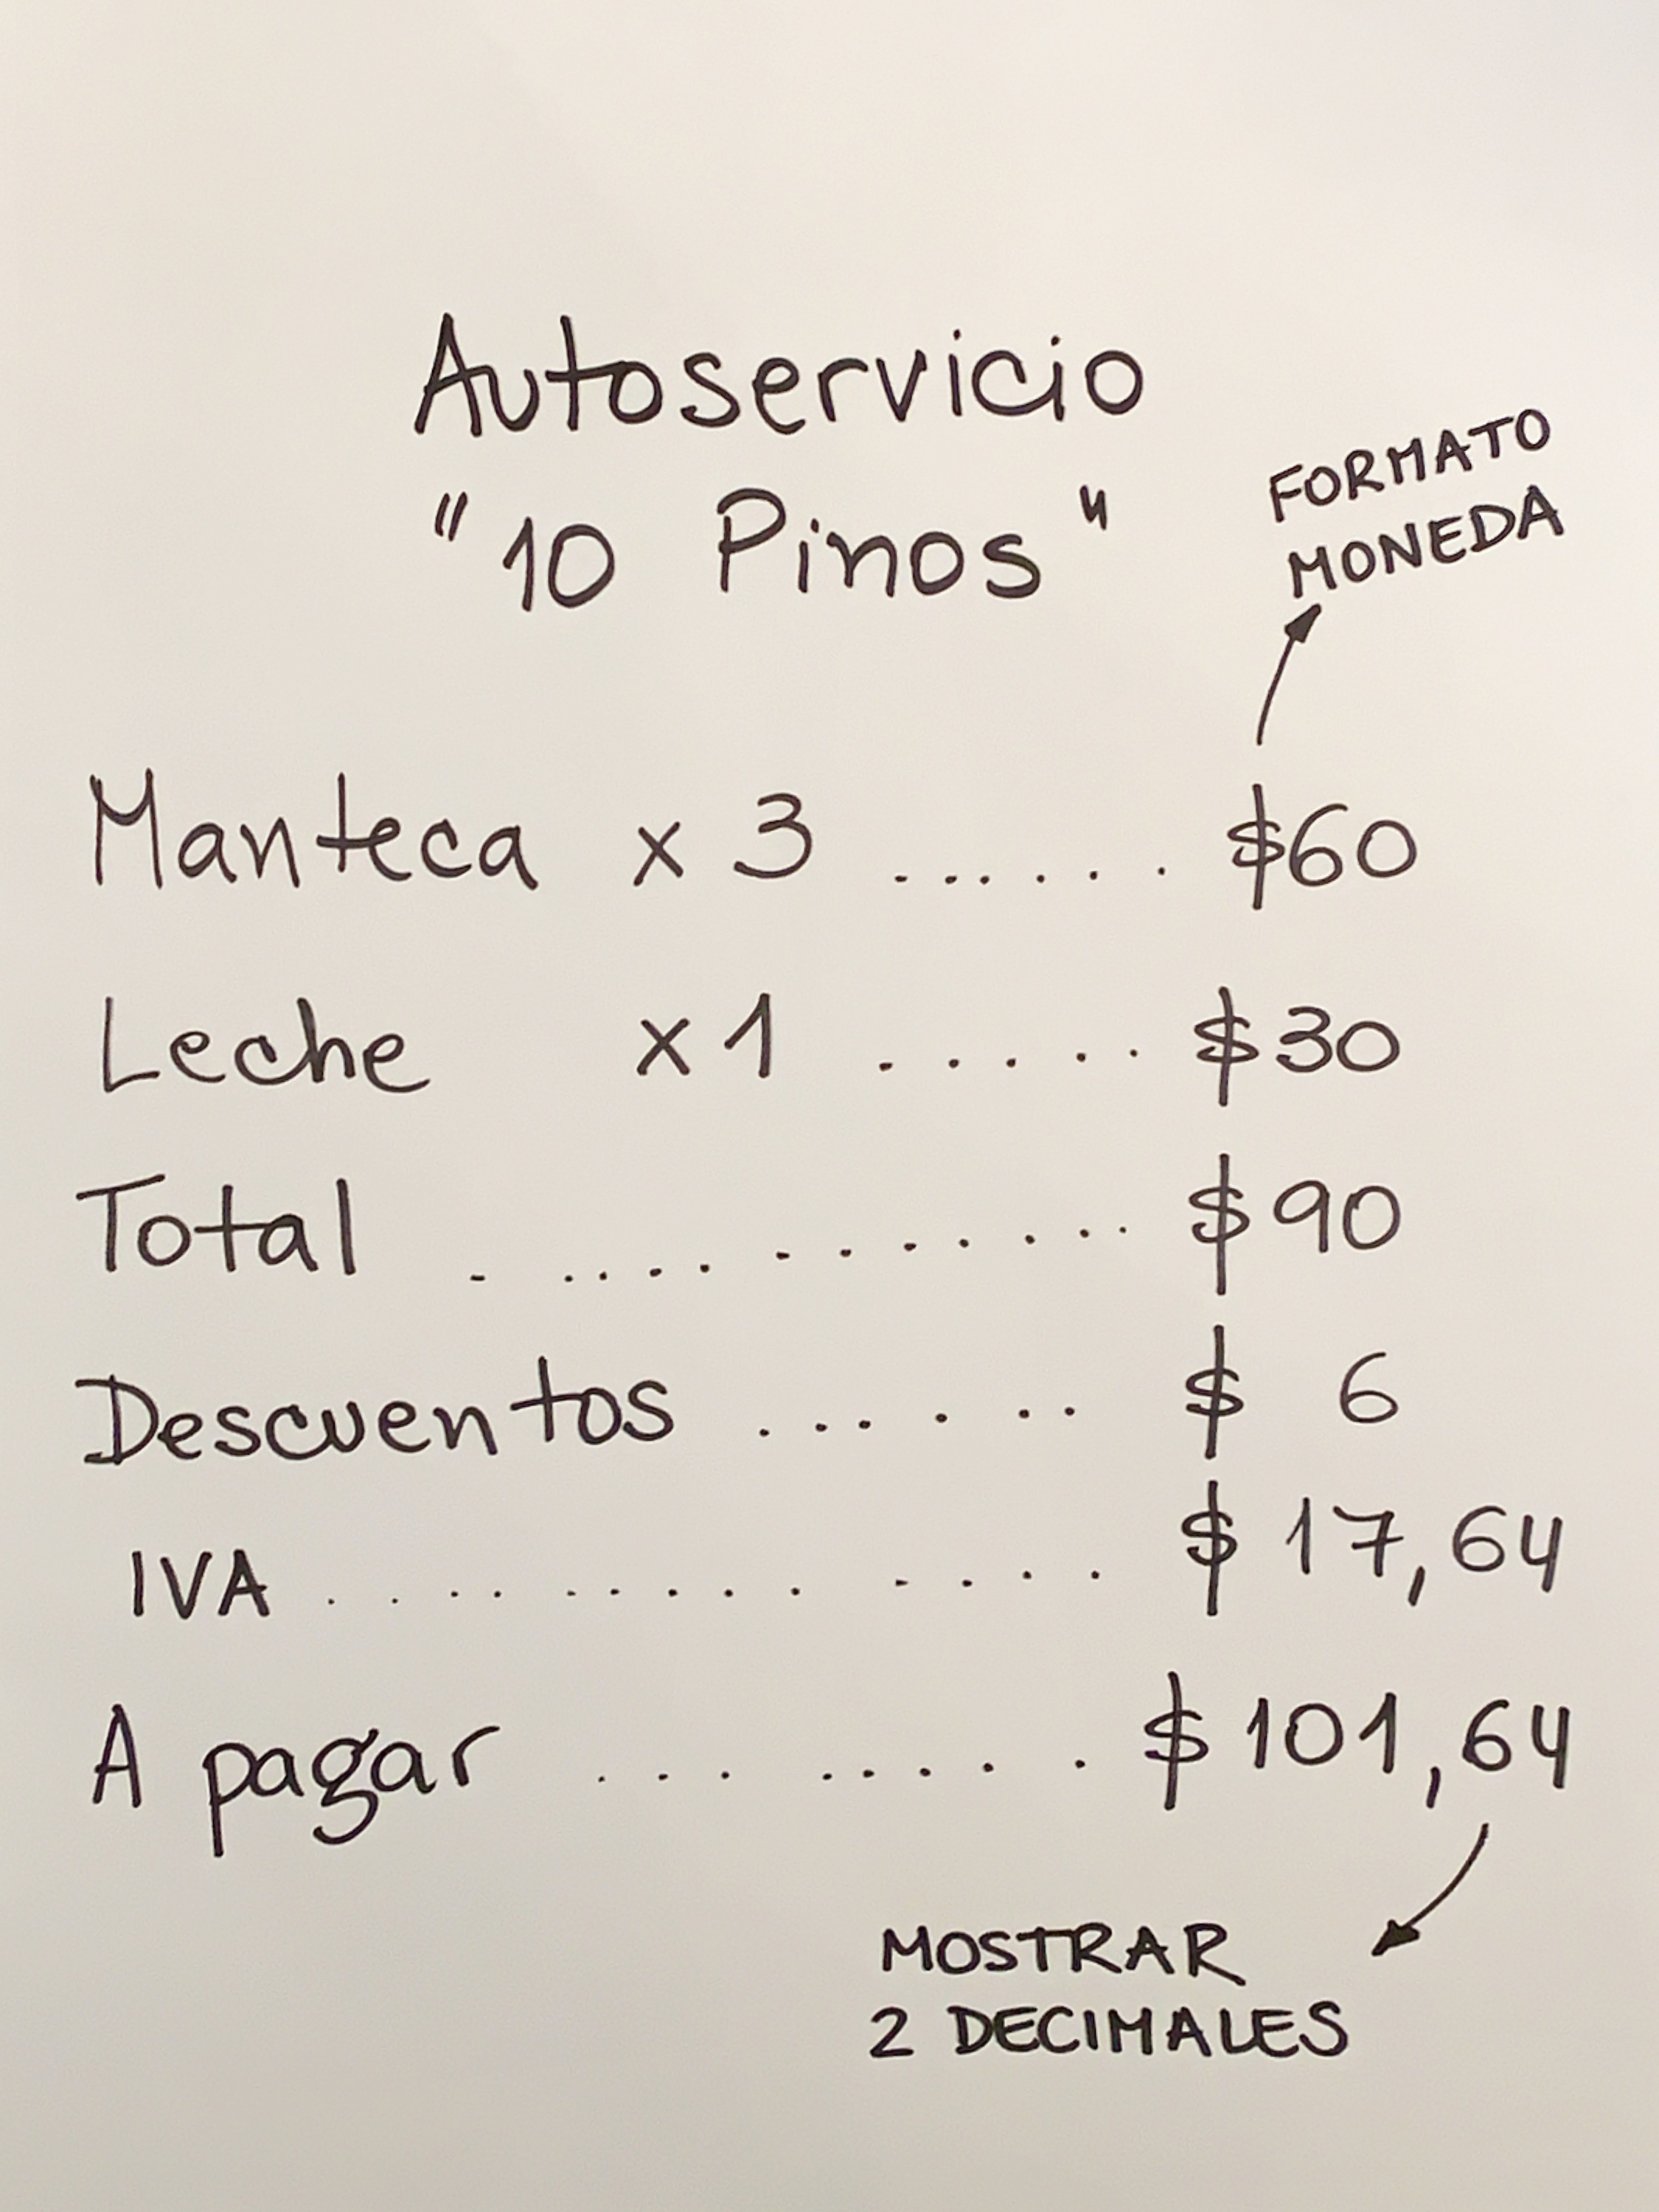 Autoservicio
"10 Pinos"
FORMATO
MONEDA
Manteca x 3 ...... $60
Leche x 1 ..... $30
Total ............ $90
Descuentos ....... $ 6
IVA ............. $ 17,64
A pagar ........ $ 101,64
MOSTRAR
2 DECIMALES